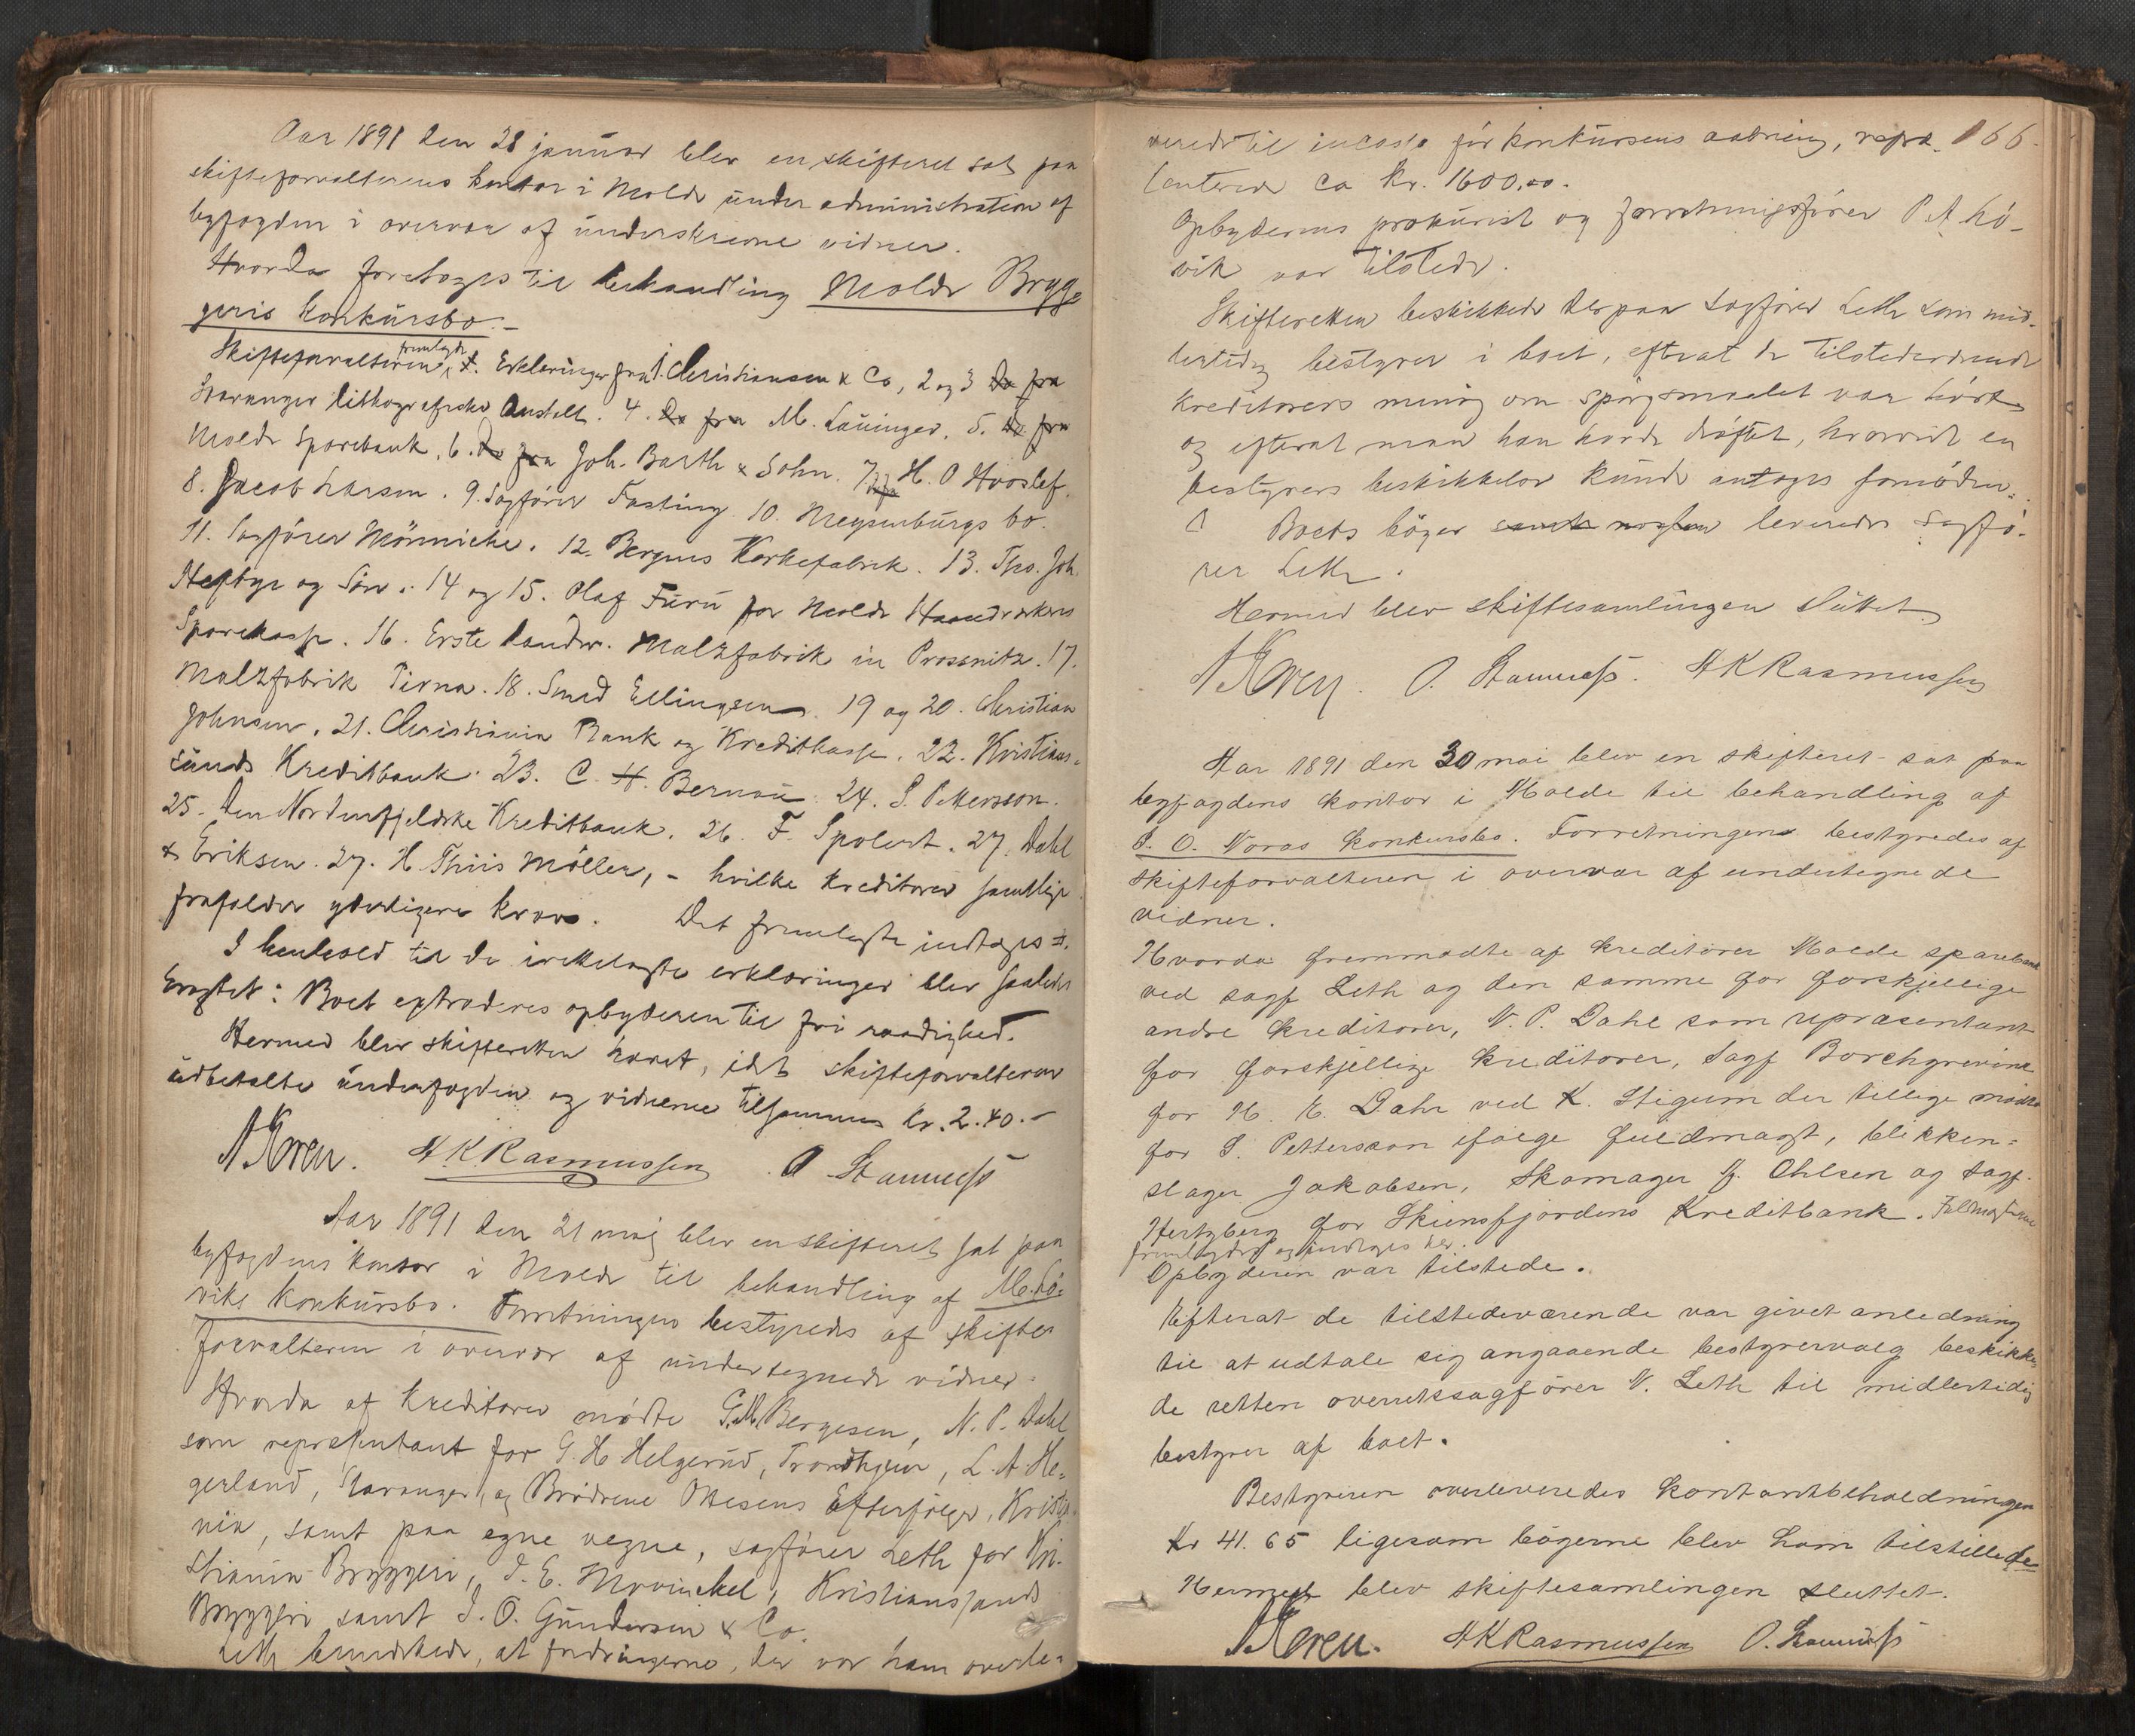 Aar 1891 den 28 januar blev en skifteret sat paa
skifteforvalterens kontor i Molde under administration af
byfogden i overvær af underskrevne vidner.
Hvorda foretoges til behandling Molde Bryg-
geris konkursbo.-
Skifteforvalteren fremlagde 1. Erklæringer fra J. Christiansen & Co, 2 og 3 Do fra
Stavanger lithografiske Anstalt. 4. Do fra M. Lauinger. 5. Do fra
Molde Sparebank, 6. Do fra Joh. Barth & Sohn. 7 H. O Hvoslef.
8. Jacob Larsen. 9. Sagfører Fasting. 10. Meysenburgs bo.
11. Sagfører Mönniche. 12. Bergens Korkefabrik. 13. Tho. Joh.
Heftye og Søn. 14 og 15. Olaf Furu for Molde Haandværkers
Sparekasse. 16. Erste landw. Malzfabrik in Prossnitz. 17.
Malzfabrik Pirna. 18. Smed Ellingsen. 19 og 20. Christian
Johnsen. 21. Christiania Bank og Kreditkasse. 22. Kristians-
sunds Kreditbank. 23. C. H. Bernau. 24. S. Pettersson.
25. Den Nordenfjeldske Kreditbank. 26. F. Spolert. 27. Dahl
& Eriksen. 27. H. Thiis Möller, - hvilke kreditorer samtlige
frafalder yderligere krav. Det fremlagte indtages
I henhold til de irettelagte erklæringer blev saaledes
Eragtet: Boet extraderes opbyderen til fri raadighed.
Hermed blev skifteretten hævet, idet skifteforvalteren
udbetalte underfogden og vidnerne tilsammen kr. 2.40.-
N Koren. H. K. Rasmussen O Stamness
Aar 1891 den 21 maj blev en skifteret sat paa
byfogdens kontor i Molde til behandling af M. Lö-
viks konkursbo. Forretningen bestyredes af skifte-
forvalteren i overvær af undertegnede vidner.
Hvorda af kreditorer mødte G. M. Bergesen, N. P. Dahl
som repræsentant for G. H Helgerud, Trondhjem, L. A. He-
gerland, Stavanger, og Brødrene Ottesens Efterfølger, Kristia-
nia, samt paa egne vegne, sagfører Leth for Kri-
stiania Bryggeri, J. E. Mowinckel, Kristianssands
Bryggeri samt J. O. Gundersen & Co.
Leth bemærkede, at fordringerne, der var ham overle-
veredr til incasso før konkursens aabning, repræ- 166.
senterede ca kr. 1600,00.
Opbyderens prokurist og forretningsfører P. A. Lö-
vik var tilstede.
Skifteretten beskikkede derpaa sagfører Leth som mid-
lertidig bestyrer i boet, efterat de tilstedeværende
kreditorers mening om spørgsmaalet var hørt
og efterat man han havde drøftet, hvorvidt en
bestyrers beskikkelse kunde antages fornøden.
Boets bøger samt nøglen leveredes Sagfø-
rer Leth.
Hermed blev skiftesamlingen sluttet.
N Koren. O. Stamness. H K Rasmussen
Aar 1891 den 30 mai blev en skifteret sat paa
byfogdens kontor i Molde til behandling af
J. O. Noras konkursbo. Forretningen bestyredes af
skifteforvalteren i overvær af undertegnede
vidner.
Hvorda fremmødte af kreditorer Molde sparebank
ved sagf Leth og den samme for forskjellige
andre kreditorer, N. P. Dahl som repræsentant
for forskjellige kreditorer, Sagf Borchgrevink
for H. K. Dahr ved K. Stigum der tillige mødte
for S. Pettersson ifølge fuldmagt, blikken-
slager Jakobsen, Skomager J. Ohlsen og sagf.
Hertzberg for Skiensfjordens Kreditbank. Fuldmagterne
fremlagdes og indtages her.
Opbyderen var tilstede.
Efterat de tilstedeværende var givet anledning
til at udtale sig angaaende bestyrervalg beskikke-
de retten overretssagfører N. Leth til midlertidig
bestyrer af boet.
Bestyreren overleveredes kontantbeholdningen
Kr 41.65 ligesom bøgerne blev ham tilstillede
Hermed blev skiftesamlingen sluttet.
N Koren. H K Rasmussen O. Stamness